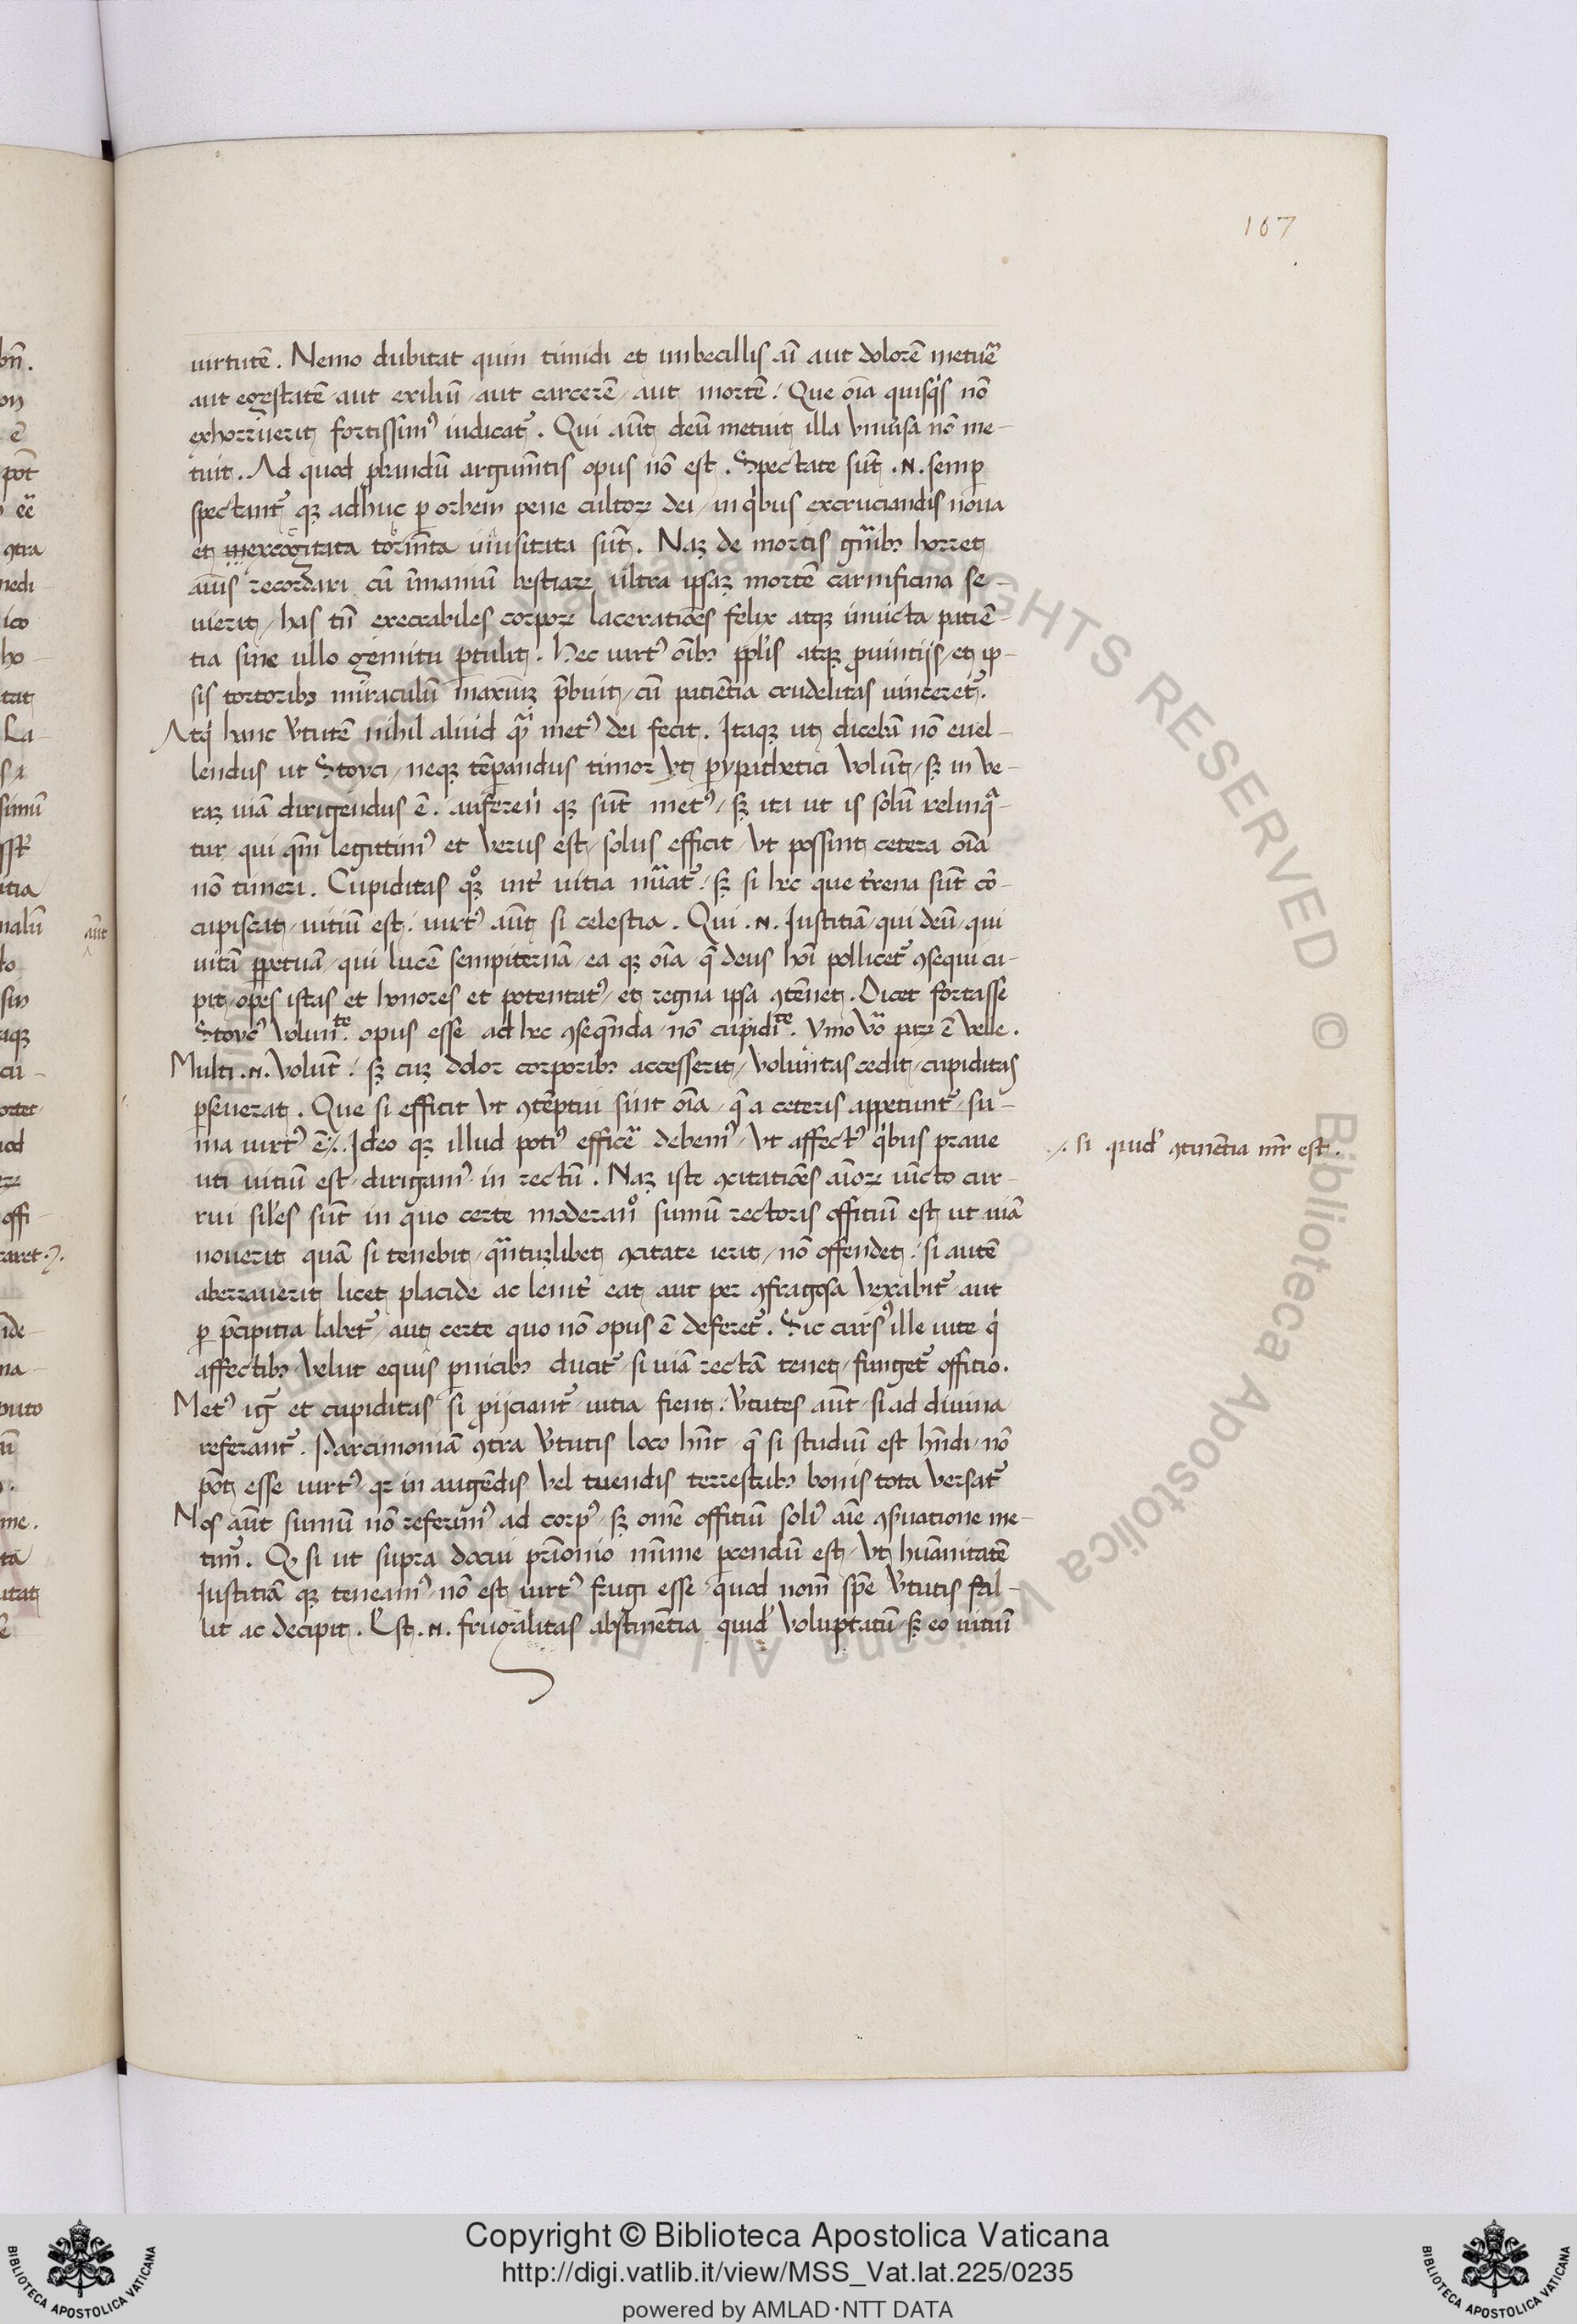 167
uirtutē. Nemo dubitat quin timidi et imbecillis aī aut dolorē metuē
aut egestatē aut exiliū aut carcerē aut mortē. Que oīa quisqs nō
exhorruerit fortissim9 iudicat᷑. Qui aūt deū metuit illa vniuīsa nō me-
tuit. Ad quod ꝓbandū argumētis opus nō est. Spectate sūt .N. semꝑ
spectant᷑ qꝫ adhuc ꝑ orbem pene cultoꝝ dei in qibus excruciandis noua
et excogitata tormēta inusitata sūt. Naꝫ de mortis gn̄ibꝫ horret
aius recordari cū īmaniū bestiaꝝ ultra ipsaꝫ mortē carnificina se-
uierit has tn̄ execrabiles corpoꝝ laceratiōes felix atqꝫ inuicta patiē-
tia sine ullo gemitu ꝑtulit. Hec uirt9 oībꝫ pplis atqꝫ ꝓuintijs et ip-
sis tortoribꝫ miraculū maximꝫ p̄buit cū patiētia crudelitas uinceret᷑.
Atqi hanc v̄tutē nihil aliud qm̄ met9 dei fecit. Itaqꝫ ut dicebā nō euel-
lendus ut Stoyci neqꝫ tēperandus timor vt perypathetici volūt sꝫ in ve-
raꝫ uiā dirigendus ē. auferen̄i qꝫ sūt met9 sꝫ ita ut is solū relinqa-
tur qui qm̄ legittim9 et verus est solus efficit vt possint cetera oīa
nō timeri. Cupiditas qꝫ int᷑ uitia nūat᷑ sꝫ si hec que t᷑rena sūt cō-
cupiscat uitiū est uirt9 aūt si celestia. Qui .N. Iustitiā qui deū qui
uitā ꝑpetuā qui lucē sempiternā ea qꝫ oīa q̄ deus hoī pollicet᷑ ꝯsequi cu-
pit opes istas et honores et potentat9 et regna ipsa ꝯtēnet. Dicet fortasse
Stoyc9 volunte opus esse ad hec ꝯseqnda nō cupidite. ymo v̄o paꝝ ē velle.
Multi .N. volūt sꝫ cuꝫ dolor corporibꝫ accesserit voluntas cedit cupiditas
ꝑseuerat. Que si efficit vt ꝯtēptui sint oīa q̄ a ceteris appetunt᷑ su-
ma uirt9 ē. Ideo qꝫ illud poti9 efficē debem9 vt affect9 qibus praue
uti uitiū est dirigam9 in rectū. Naꝫ iste ꝯcitatiōes aīoꝝ iūcto cur-
rui siles sūt in quo certe moderano sumū rectoris offitiū est ut uiā
nouerit quā si tenebit qn̄tuꝫlibet ꝯcitate ierit nō offendet si autē
aberrauerit licet placide ac lenit᷑ eat aut per ꝯfragosa vexabit᷑ aut
ꝑ p̄cipitia labet᷑ aut certe quo nō opus ē deferet᷑. Sic curs9 ille uite qi
affectibꝫ velut equis ꝑnicibꝫ ducit᷑ si uiā rectā tenet funget᷑ offitio.
Met9 ig᷑ et cupiditas si ꝓijciant᷑ uitia fient v̄tutes aūt si ad diuina
referant᷑. Parcimoniā ꝯtra v̄tutis loco hn̄t q̄ si studiū est hn̄di nō
pōt esse uirt9 qꝛ in augēdis vel tuendis terrestribꝫ bonis tota versat᷑
Nos aūt sumū nō referim9 ad corp9 sꝫ omē offitiū soli9 aīe ꝯsuatione me-
tim᷑. Q si ut supra docui pr̄imonio mīme ꝑcendū est vt humanitatē
Iustitiā qꝫ teneam9 nō est uirt9 frugi esse quod nom̄ spē v̄tutis fal-
lit ac decipit. Est .N. frugalitas abstinētia quid voluptatū sꝫ eo uitiū
si quid ꝯtinētia mr̄ est.
Copyright © Biblioteca Apostolica Vaticana
http://digi.vatlib.it/view/MSS_Vat.lat.225/0235
powered by AMLAD·NTT DATA